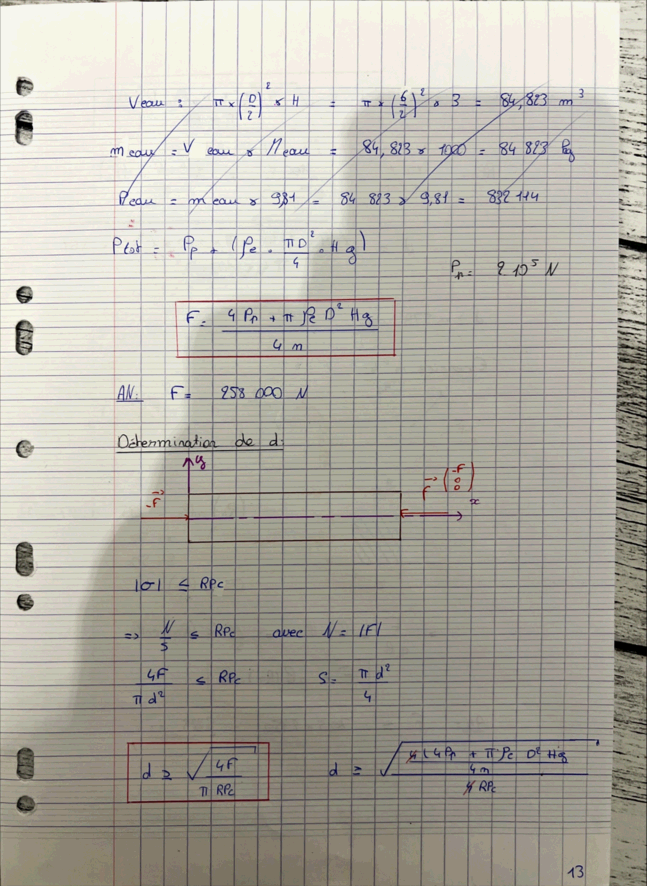 Veau = π × (D/2)² × H = π × (6/2)² × 3 = 84,823 m³
meau = Veau × Meau = 84,823 × 1000 = 84 823 kg
Peau = meau × 9,81 = 84 823 × 9,81 = 832 114
Ptot = Pp + (ρe · πD²/4 · Hg)
Pp = 2.10⁵ N
F = (4 Pp + π ρe D² Hg) / 4n
AN: F = 258 000 N
Détermination de d:
y
-F⃗
F⃗ (-F 0 0)
x
|σ| ≤ RPc
=> N/S ≤ RPc avec N = |F|
4F/πd² ≤ RPc S = πd²/4
d ≥ √(4F/π RPc) d ≥ √(4(4Pp + π ρe D² Hg)/4n / 4 RPc)
13